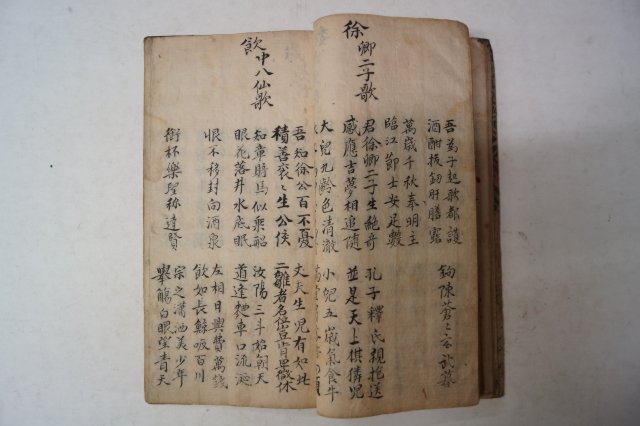 吾爲子起歌都護
酒酣拔劍肝膽露 鉤陳蒼蒼玄武暮
萬歲千秋奉明主
臨江節士安足數
徐卿二子歌
君徐卿二子生絶奇 孔子釋氏親抱送
感應吉夢相追隨 並是天上麒麟兒
大兒九齡色清澈 小兒五歲氣食牛
吾知徐公百不憂 丈夫生兒有如此
積善衮〻生公侯 二雛者名位豈肯卑微休
飮中八仙歌
知章騎馬似乘船 汝陽三斗始朝天
眼花落井水底眠 道逢麴車口流涎
恨不移封向酒泉 左相日興費萬錢
飮如長鯨吸百川
銜杯樂聖称達賢 宗之瀟洒美少年
擧觴白眼望青天